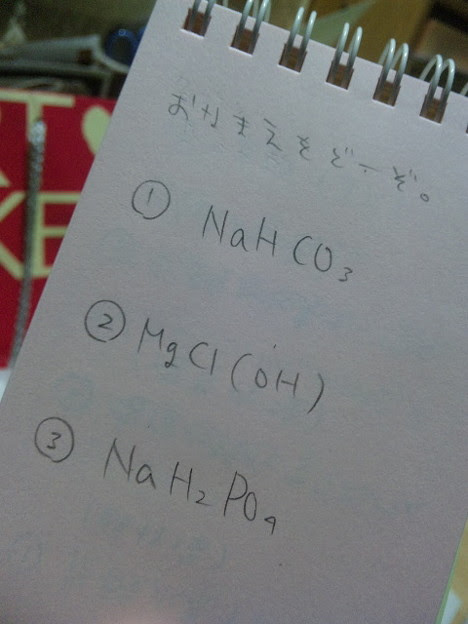 おなまえをどーぞ。
① NaHCO₃
② MgCl(OH)
③ NaH₂PO₄